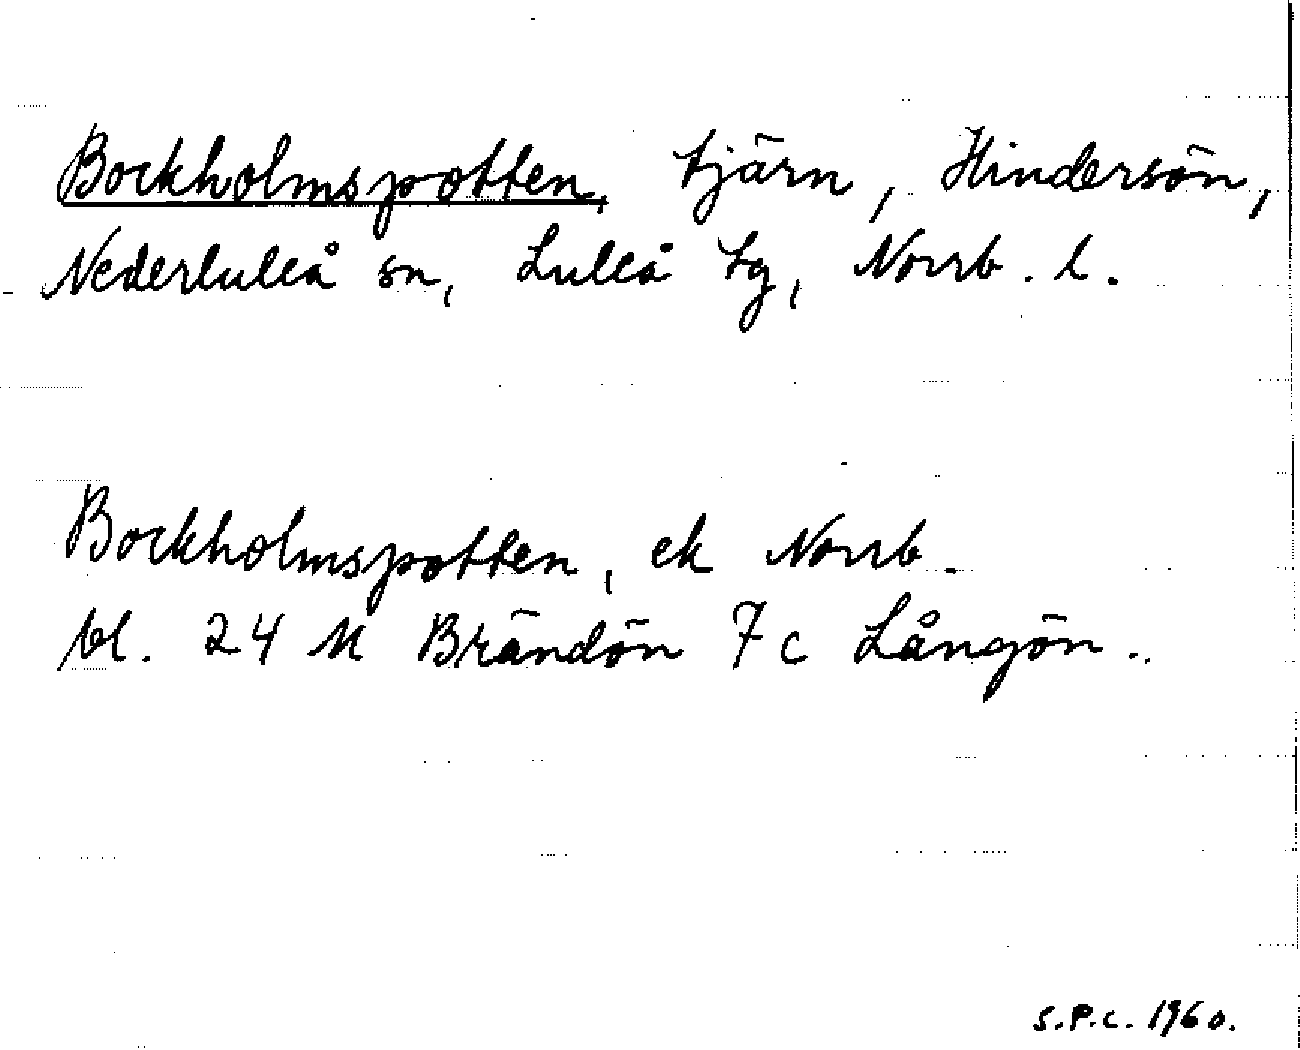 Bockholmspotten, tjärn, Hindersön,
Nederluleå sn, Luleå tg, Norrb. l.
Bockholmspotten, ek Norrb.
bl. 24 M Brändön 7 c Långön.
S.P.C. 1960.